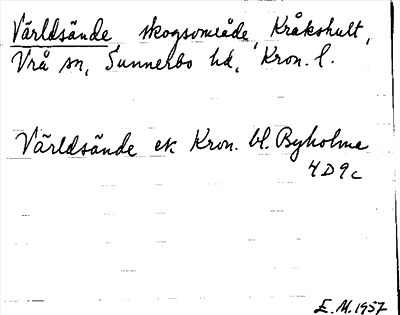 Världsände skogsområde, Kråkshult,
Vrå sn, Sunnerbo hd, Kron. l.
Världsände ek Kron. bl. Byholma
4D9c
E. M. 1957